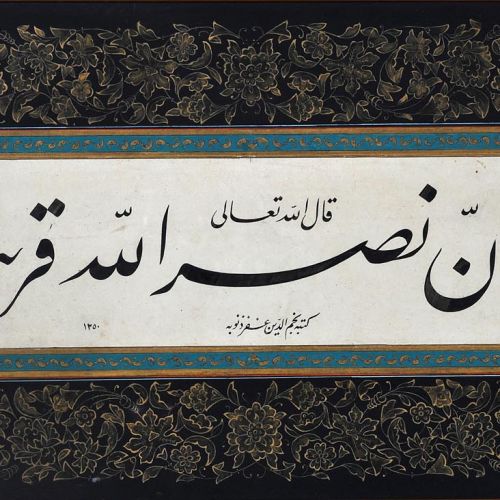 قال الله تعالى
نّ نصر الله قر
كتبه نجم الدين غفر ذنوبه
١٣٥٠